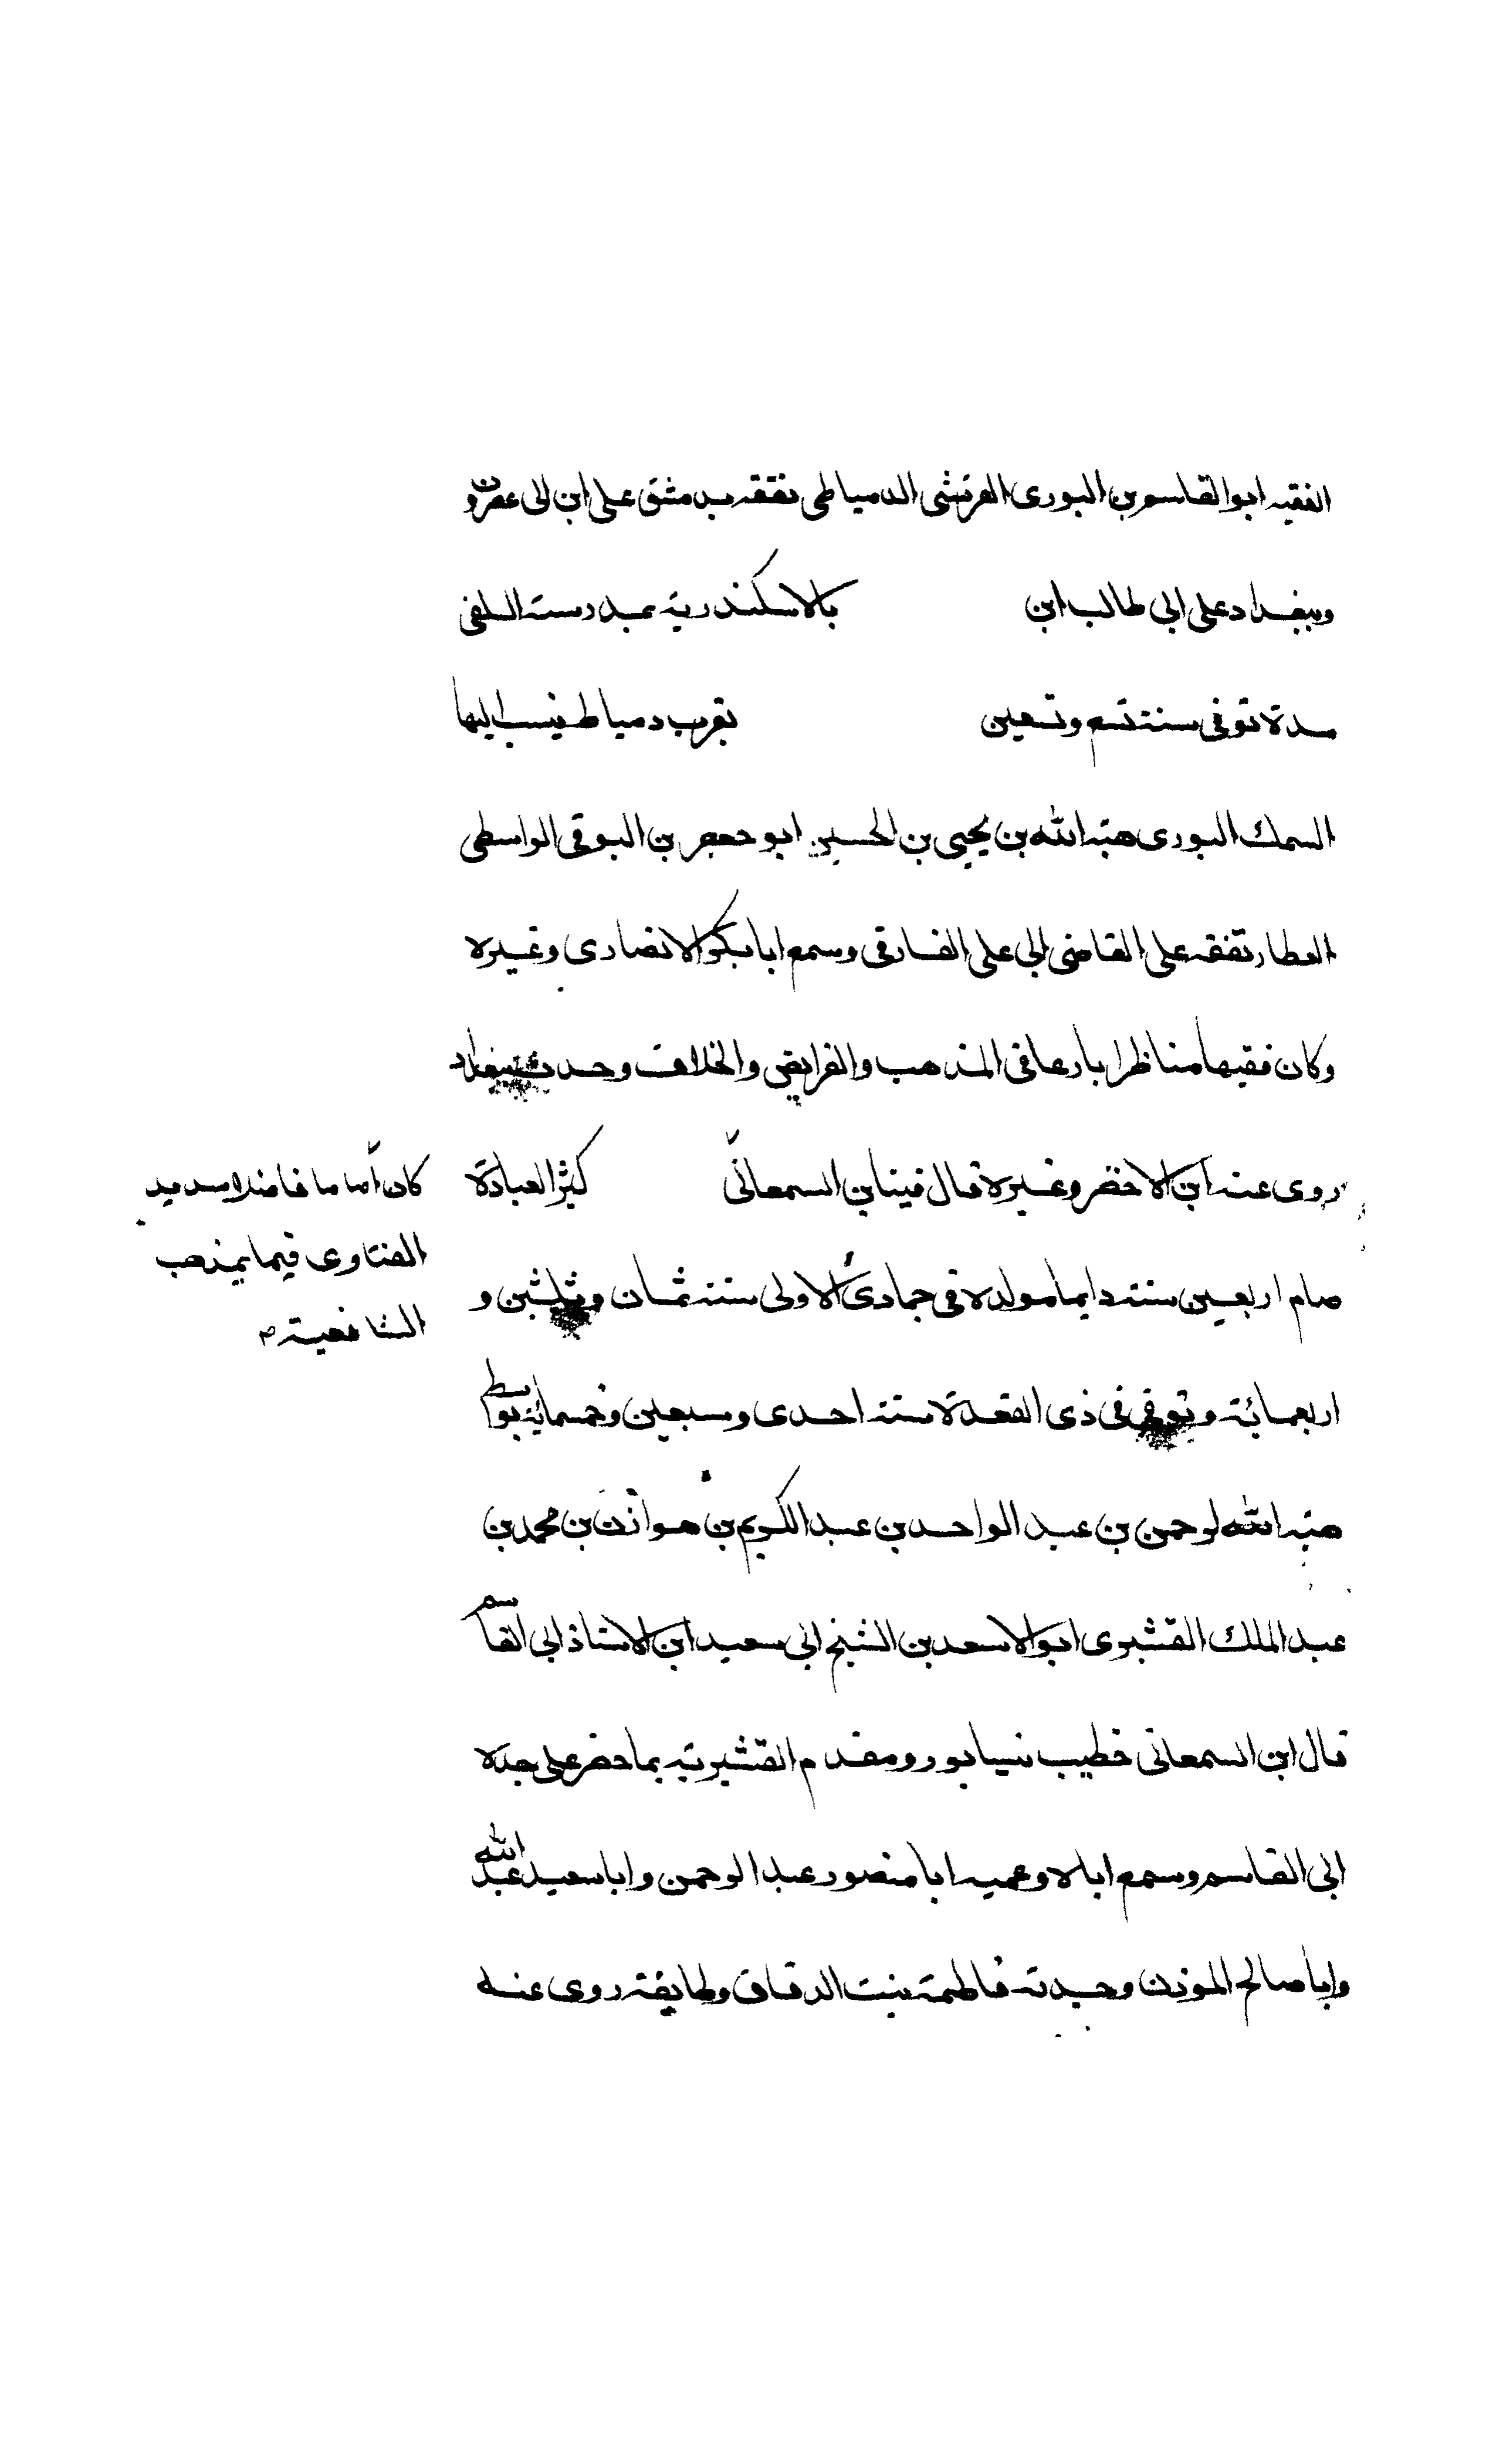 الفقيه ابوالقاسم بن البوری القرشی الدمیاطی تفقه بدمشق علی ابن ابی عصرون
وببغداد علی ابی طالب ابن بالاسکندریة بمدرسة السلفی
مدة توفی سنة تسع وتسعین بقرب دمیاط ینسب الیها
السمك البوری هبة الله بن یحیی بن الحسین ابو جعفر بن البوقی الواسطی
العطار تفقه علی القاضی ابی علی الفارقی وسمع ابا بکر الانصاری وغیره
وکان فقیها مناظرا بارعا فی المذهب والفرایض والخلاف وحدث ببغداد
روی عنه ابن الاخضر وغیره قال فینا ابن السمعانی کثیر العبادة
کان اماما فاضلا سدید
الفتاوی قیما بمذهب
الشافعیة
صام اربعین سنة دایما مولده فی جمادی الاولی سنة ثمان وثلثین و
اربعمائة وتوفی فی ذی القعدة سنة احدی وسبعین وخمسمایة بواسط
هبة الله لرحمن بن عبد الواحد بن عبد الکریم بن هوازن بن محمد بن
عبد الملك القشیری ابو الاسعد بن الشیخ ابی سعید ابن الاستاذ ابی القاسم
قال ابن السمعانی خطیب نیسابور ومقدم القشیریة بما حضر علی جده
ابی القاسم وسمع اباه وعمیه ابا منصور عبد الرحمن وابا سعید عبد الله
وابا صالح الموذن وجدته فاطمة بنت الدقاق وطایفة روی عنه